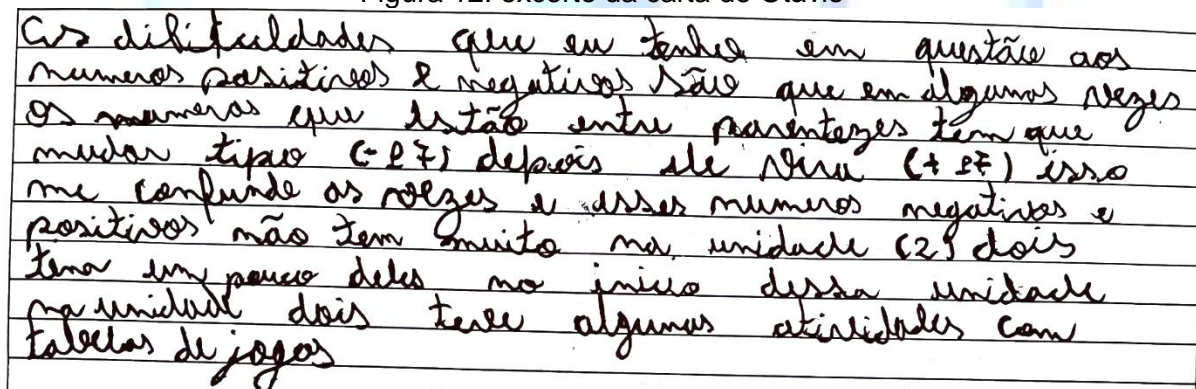 Figura 12: excerto da carta de Otávio
As dificuldades que eu tenho em questão aos
numeros positivos e negativos são que em algumas vezes
os numeros que estão entre parentezes tem que
mudar tipo (-27) depois ele vira (+27) isso
me confunde as vezes e esses numeros negativos e
positivos não tem muito na unidade (2) dois
tem um pouco deles no inicio dessa unidade
na unidade dois teve algumas atividades com
tabelas de jogos